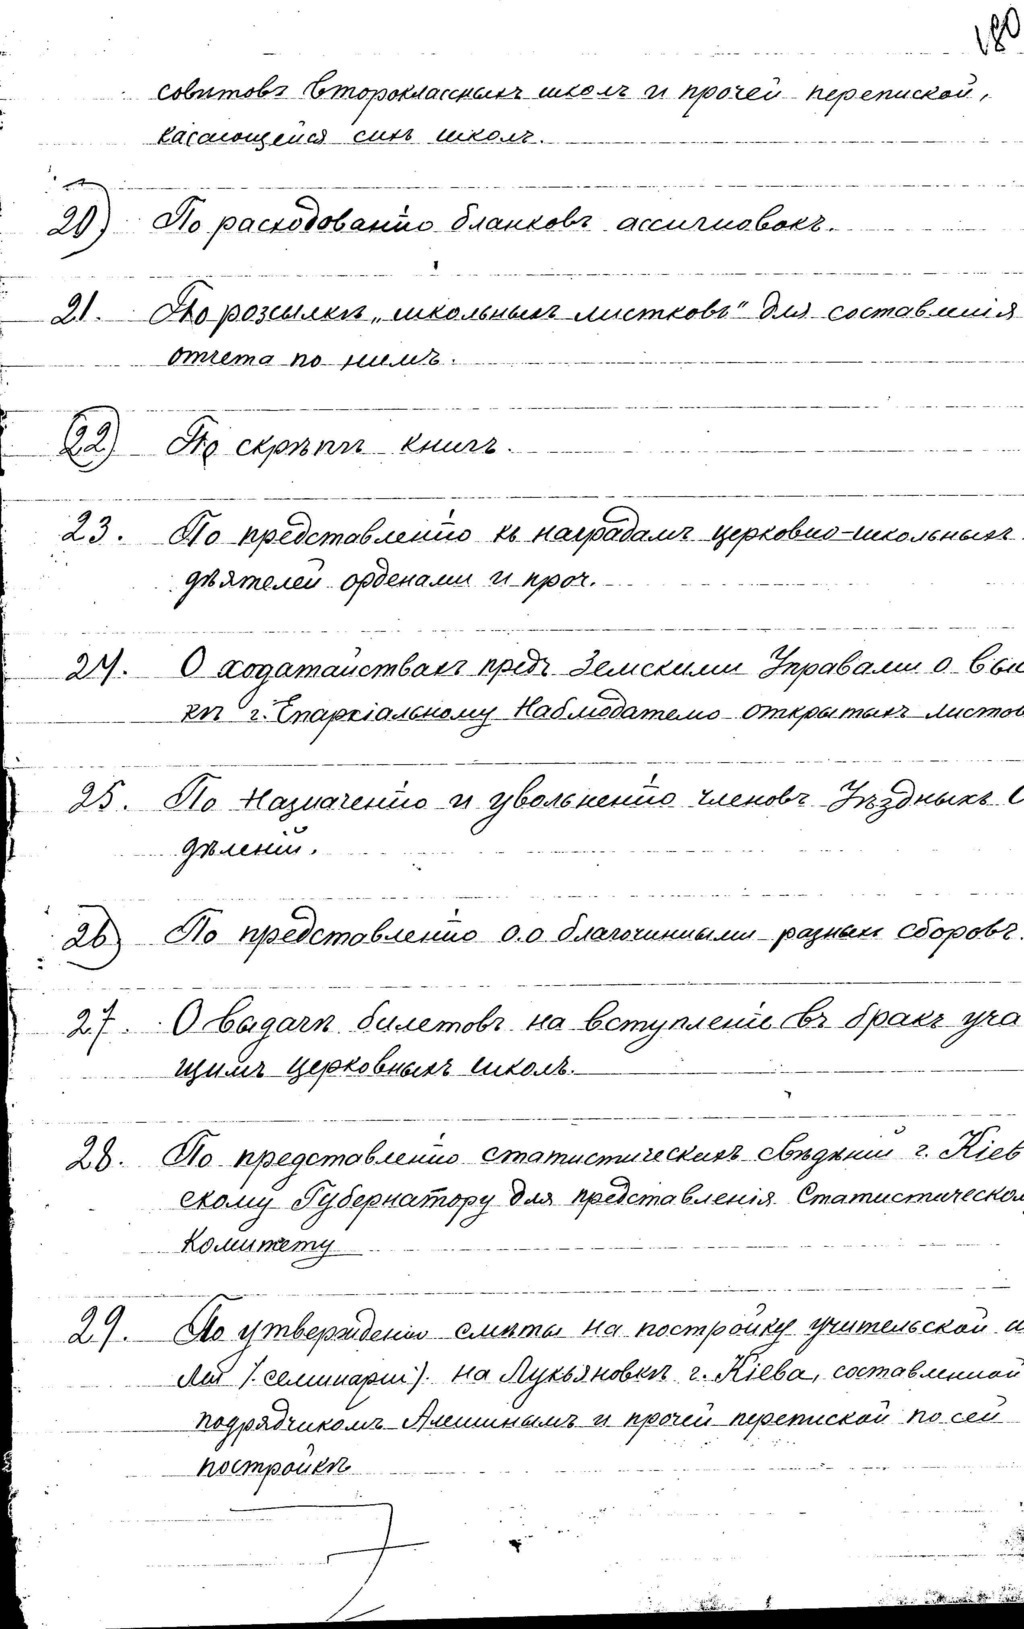 180
совѣтовъ второклассныхъ школъ и прочей перепиской,
касающейся сихъ школъ.
20) По расходованію бланковъ ассигновокъ.
21. По розсылкѣ „школьныхъ листковъ" для составленія
отчета по нимъ.
22) По скрѣпѣ книгъ.
23. По представленію къ наградамъ церковно-школьныхъ
дѣятелей орденами и проч.
24. О ходатайствахъ предъ Земскими Управами о вы
кѣ г. Епархіальному Наблюдателю открытыхъ листов
25. По назначенію и увольненію членовъ Уѣздныхъ О
дѣленій.
26) По представленію о.о благочинными разных сборовъ.
27. О выдачѣ билетовъ на вступленіе въ бракъ уча
щимъ церковныхъ школъ.
28. По представленію статистическихъ свѣдѣній г. Кіев
скому Губернатору для представленія Статистическом
Комитету
29. По утвержденію смѣты на постройку учительской ш
лы /. семинаріи). на Лукьяновкѣ г. Кіева, составленной
подрядчикомъ Алешинымъ и прочей перепиской по сей
постройкѣ